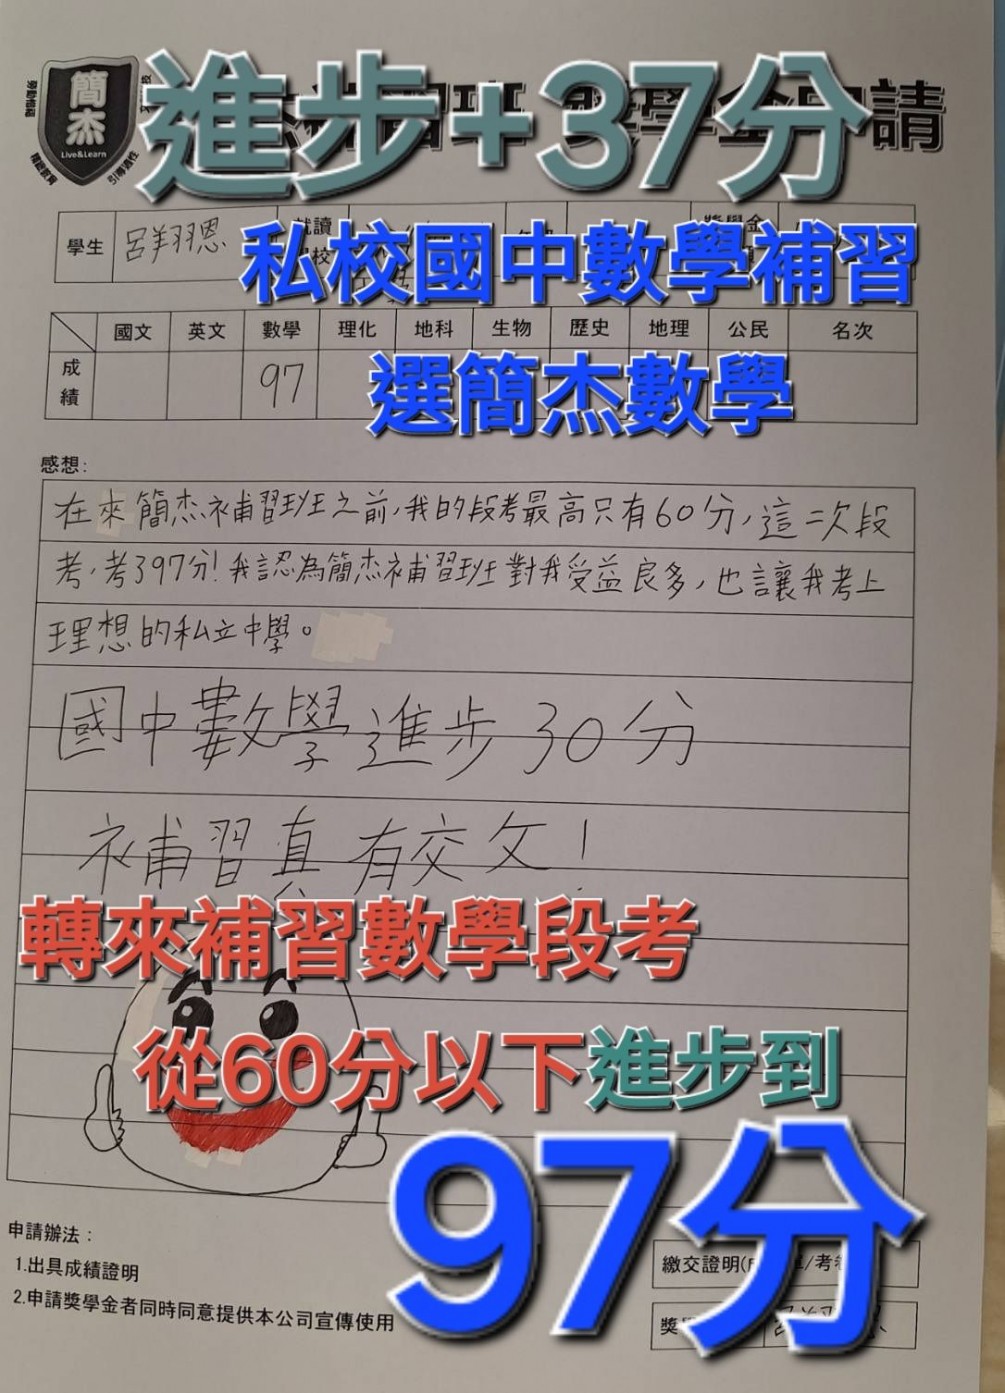 簡杰
Live&Learn
進步+37分
請
學生 呂翔恩 就讀
私校國中數學補習
國文 英文 數學 理化 地科 生物 歷史 地理 公民 名次
成績 97
選簡杰數學
感想:
在來簡杰補習班之前,我的段考最高只有60分,這二次段
考,考397分!我認為簡杰補習班對我受益良多,也讓我考上
理想的私立中學。
國中數學進步30分
補習真有交文!
轉來補習數學段考
從60分以下進步到
97分
申請辦法:
1.出具成績證明
2.申請獎學金者同時同意提供本公司宣傳使用
繳交證明